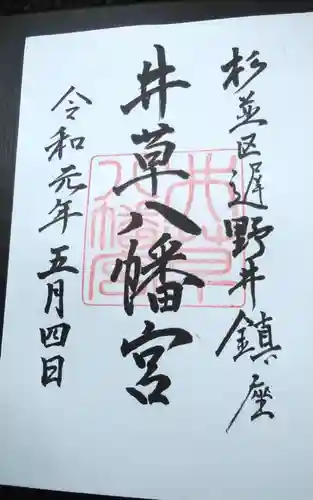 杉並区遅野井鎮座
井草八幡宮
令和元年五月四日
井草八幡宮